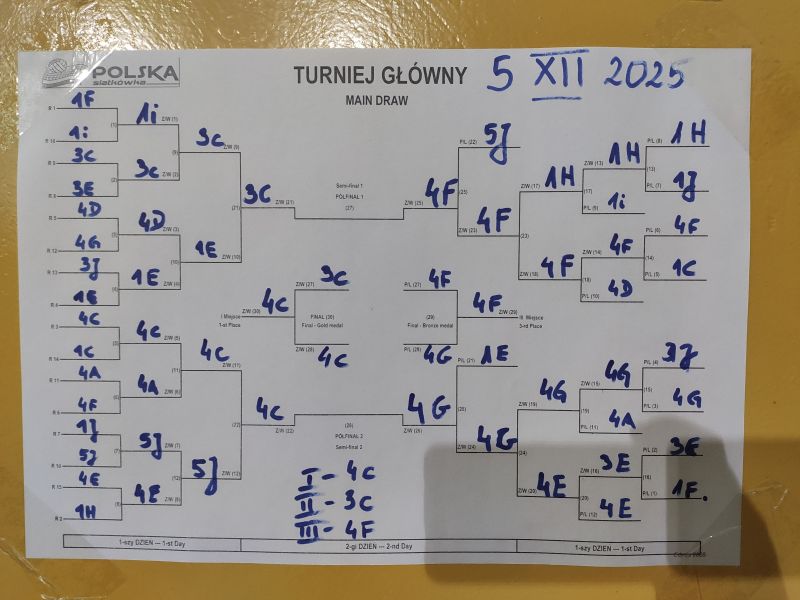 POLSKA
siatkówka
TURNIEJ GŁÓWNY 5 XII 2025
MAIN DRAW
R 1 1F
(1)
R 16 1i
1i Z/W (1)
R 9 3C
(2)
3E
3C Z/W (2)
(9)
3C Z/W (9)
R 5 4D
R 12 4G
4D Z/W (3)
R 13 3J
1E
1E Z/W (4)
(10)
1E Z/W (10)
(21)
3C Z/W (21)
R 3 4C
R 14 1C
4C Z/W (5)
R 11 4A
4F
4A Z/W (6)
(11)
4C Z/W (11)
1J
(7)
5J
5J Z/W (7)
R 15 4E
R 2 1H
4E Z/W (8)
(12)
5J Z/W (12)
(22)
4C Z/W (22)
Semi-final 1
PÓŁFINAŁ 1
(27)
4F Z/W (25)
3C
Z/W (27)
I Miejsce
1-st Place
4C Z/W (30)
FINAŁ (30)
Final - Gold medal
Z/W (28) 4C
4F
P/L (27)
(29)
Final - Bronze medal
P/L (28) 4G
4F Z/W (29)
III Miejsce
3-rd Place
(28)
PÓŁFINAŁ 2
Semi-final 2
4G Z/W (26)
P/L (22) 5J
(25)
4F Z/W (23)
1H Z/W (17)
(23)
4F Z/W (18)
1H Z/W (13)
(17)
P/L (9) 1i
4F Z/W (14)
(18)
P/L (10) 4D
P/L (8) 1H
(13)
P/L (7) 1J
P/L (6) 4F
(14)
P/L (5) 1C
P/L (21) 1E
(26)
4G Z/W (24)
4G Z/W (19)
(24)
4E Z/W (20)
4G Z/W (15)
(19)
P/L (11) 4A
3E Z/W (16)
(20)
P/L (12) 4E
P/L (4) 3J
(15)
P/L (3) 4G
P/L (2) 3E
(16)
P/L (1) 1F.
I - 4C
II - 3C
III - 4F
1-szy DZIEŃ --- 1-st Day
2-gi DZIEŃ --- 2-nd Day
1-szy DZIEŃ --- 1-st Day